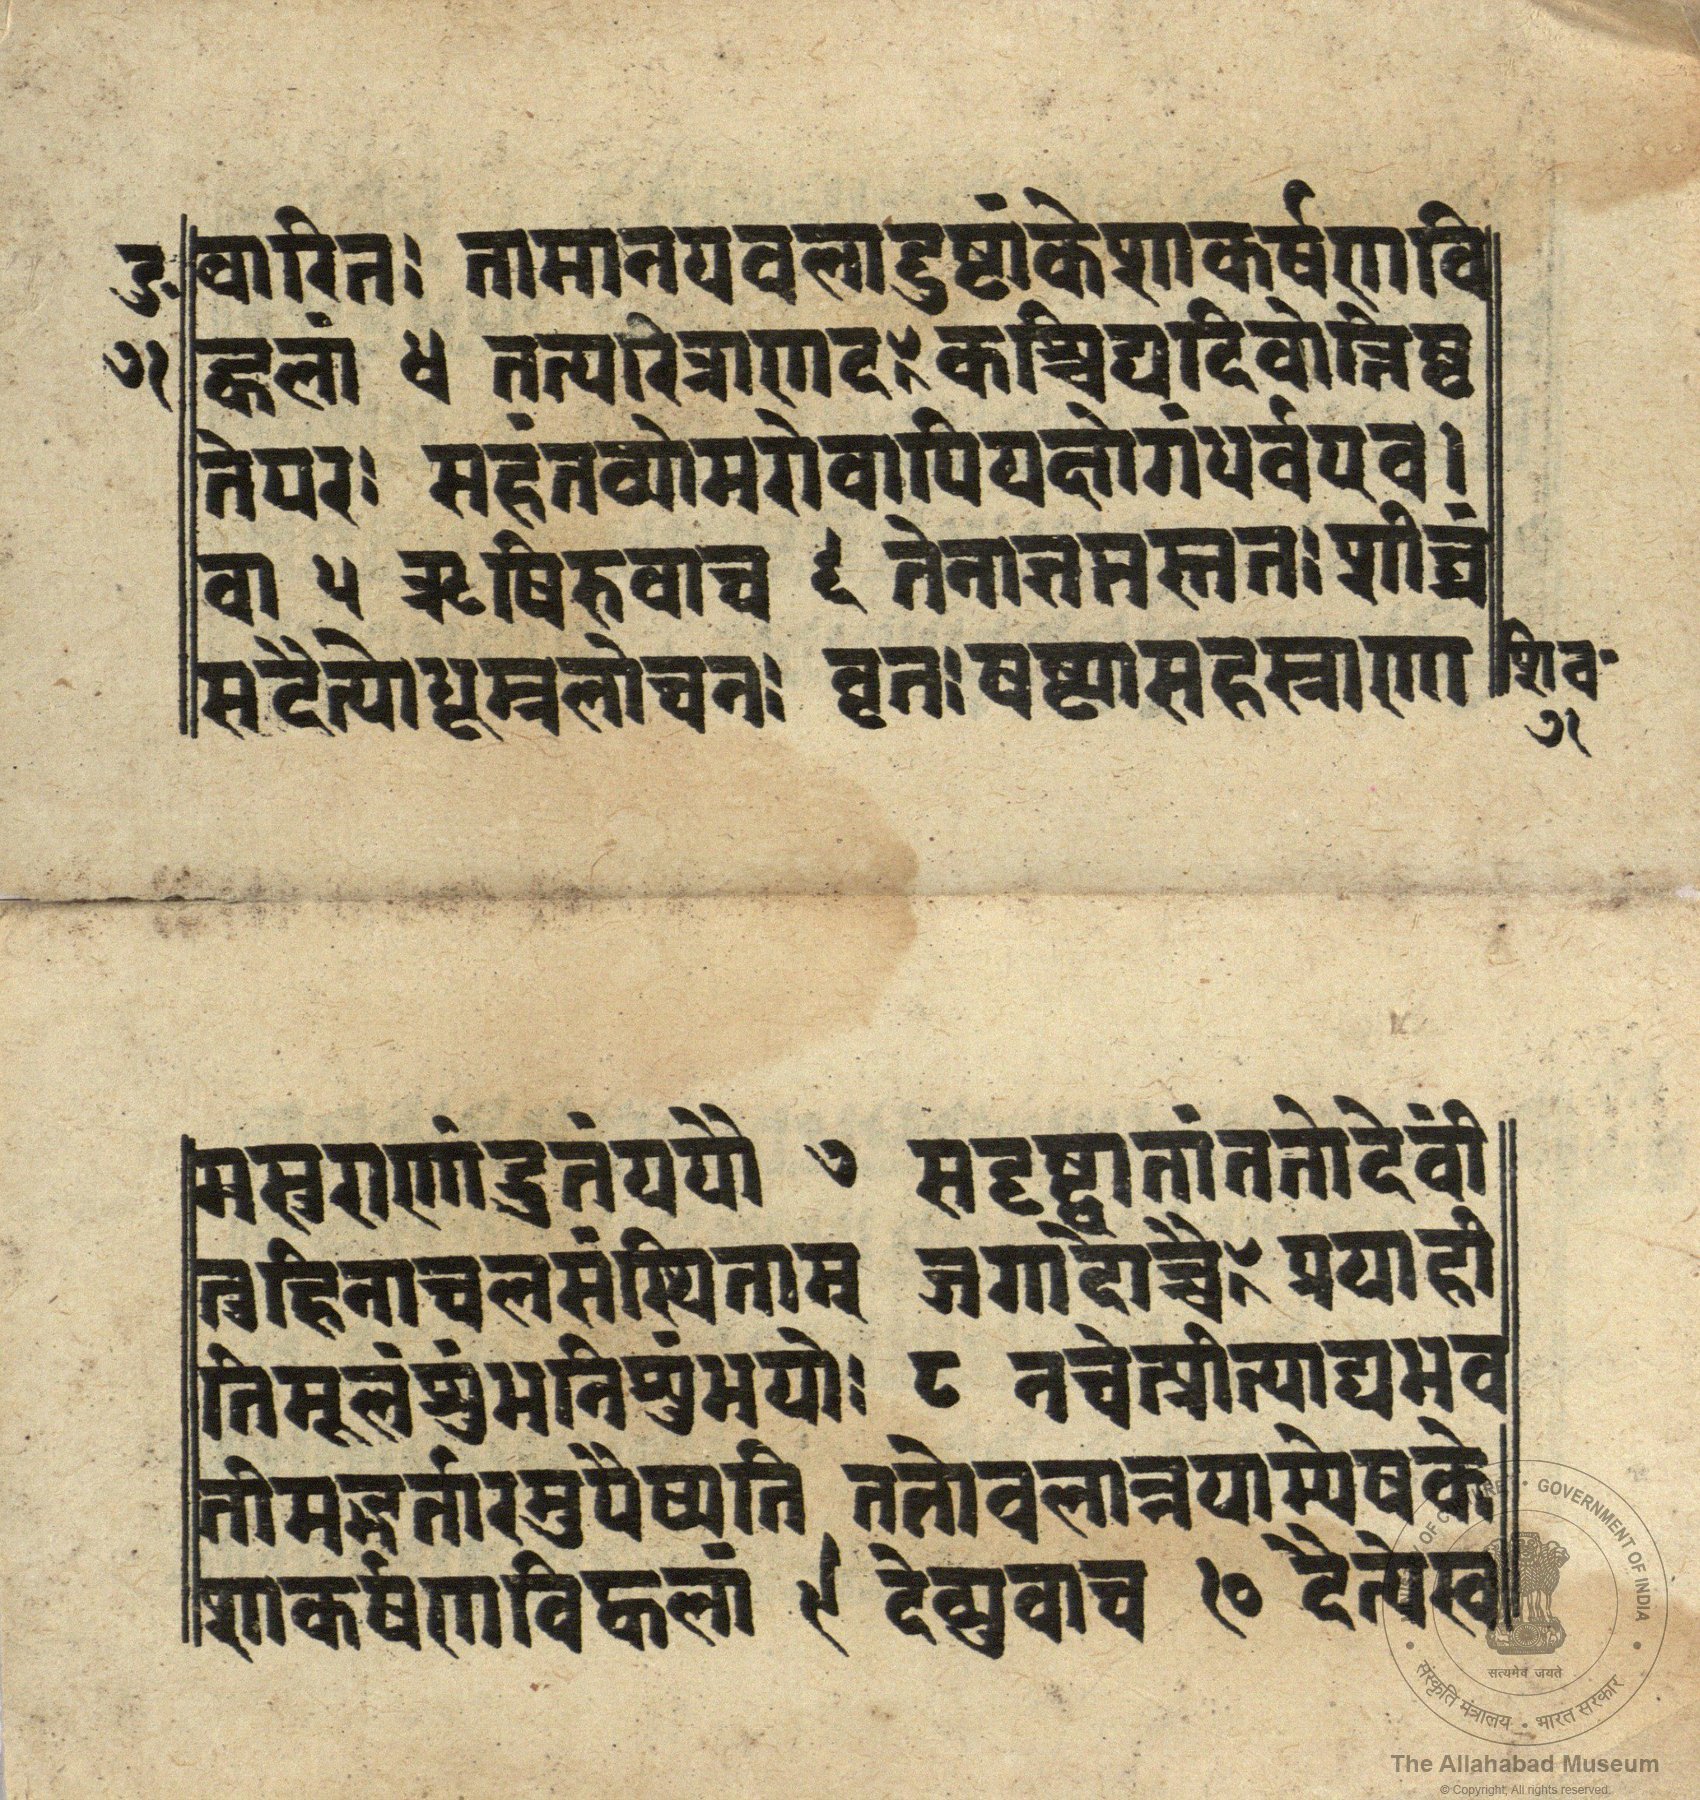 दु॰
७१
वारितः तामानयवलाद्दुष्टांकेशाकर्षणवि
ह्वलां ४ तत्परित्राणदः कश्चिद्यदिवोत्तिष्ठ
तेपरः सहंतव्योमरोवापियक्षोगंधर्वएव।
वा ५ ऋषिरुवाच ६ तेनाज्ञप्तस्ततः शीघ्रं
सदैत्योधूम्रलोचनः वृतः षष्ट्यासहस्राणा
शिव॰
७१
मसुराणांद्रुतंययौ ७ सदृष्ट्वातांततोदेवीं
तुहिनाचलसंस्थिताम् जगादोच्चैः प्रयाही
तिमूलंशुंभनिशुंभयोः ८ नचेत्प्रीत्याद्यभव
तीमद्भर्तारमुपैष्यति ततोवलान्नयाम्येषके
शाकर्षणविह्वलां ९ देव्युवाच १० दैत्येश्व
MINISTRY OF CULTURE • GOVERNMENT OF INDIA
सत्यमेव जयते
संस्कृति मंत्रालय • भारत सरकार
The Allahabad Museum
© Copyright, All rights reserved.